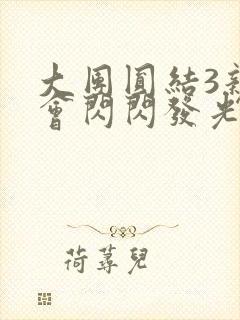 大團圓結3新
會閃閃發光
荷蕁兒